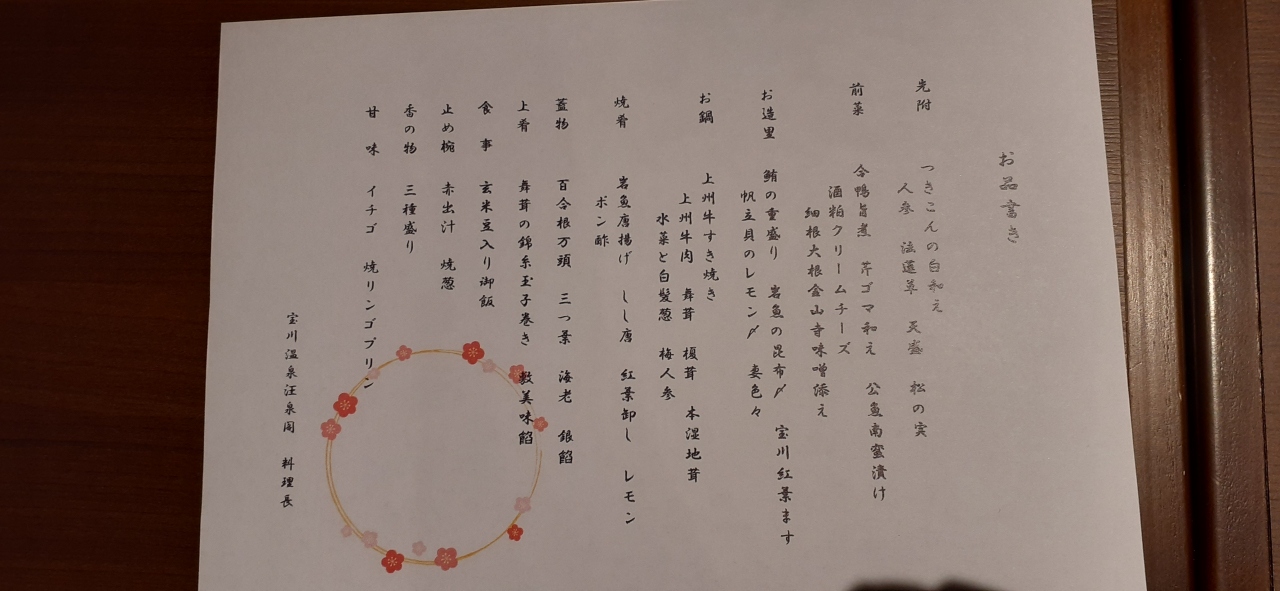 お品書き
先附
つきこんの白和え
人参 法蓮草 天盛 松の実
前菜
合鴨旨煮 芹ゴマ和え 公魚南蛮漬け
酒粕クリームチーズ
細根大根金山寺味噌添え
お造里
鮪の重盛り 岩魚の昆布〆 宝川紅葉ます
帆立貝のレモン〆 妻色々
お鍋
上州牛すき焼き
上州牛肉 舞茸 榎茸 本湿地茸
水菜と白髪葱 梅人参
焼肴
岩魚唐揚げ しし唐 紅葉卸し レモン
ポン酢
蓋物 百合根万頭 三つ葉 海老 銀餡
上肴 舞茸の錦糸玉子巻き 数美味餡
食事 玄米豆入り御飯
止め椀 赤出汁 焼葱
香の物 三種盛り
甘味 イチゴ 焼リンゴプリン
宝川温泉汪泉閣 料理長